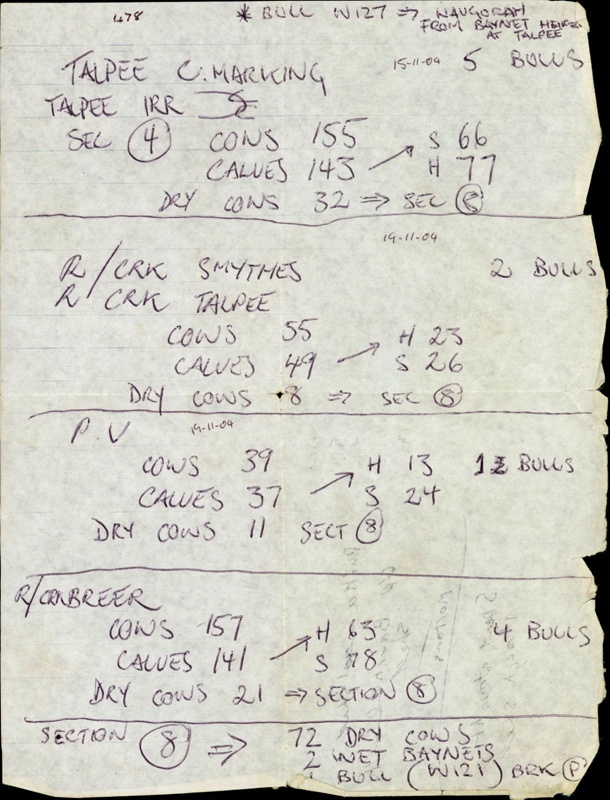 478
* BULL W127 ⇒ NAUGORAH
FROM BAYNET HEIFERS
AT TALPEE
TALPEE C.MARKING 15-11-04 5 BULLS
TALPEE IRR
SEC 4 COWS 155 S 66
CALVES 143 → H 77
DRY COWS 32 ⇒ SEC 8
19-11-04
R/CRK SMYTHES 2 BULLS
R/CRK TALPEE
COWS 55 H 23
CALVES 49 → S 26
DRY COWS 8 ⇒ SEC 8
P.V 19-11-04
COWS 39 → H 13 1 BULLS
CALVES 37 S 24
DRY COWS 11 SECT 8
R/CRKBREER
COWS 157 → H 63 4 BULLS
CALVES 141 S 78
DRY COWS 21 ⇒ SECTION 8
SECTION 8 ⇒ 72 DRY COWS
2 WET BAYNETS
1 BULL (W121) BRK P